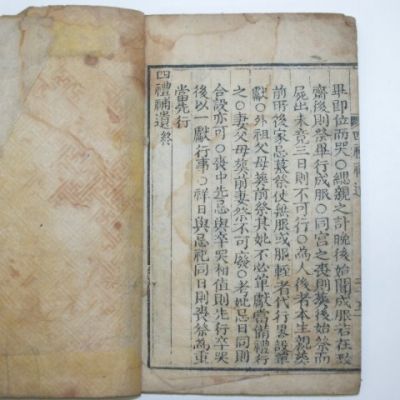 畢卽位而哭○緦親之訃晚後始聞成服若在致
齋後則祭畢行成服○同宮之喪則葬後始祭而
屍出未竟三日則不可行○為人後者本生親葬
前所後家忌墓祭使無服或服輕者代行畧設單
獻○外祖父母葬前祭其妣不必單獻當備禮行
之○妻父母葬前妻祭不可廢○考妣忌日同則
合設亦可○喪中先忌與卒哭相值則先行卒哭
後以一獻行事○祥日與忌祀同日則喪祭為重
當先行
四禮補遺終
四禮補遺